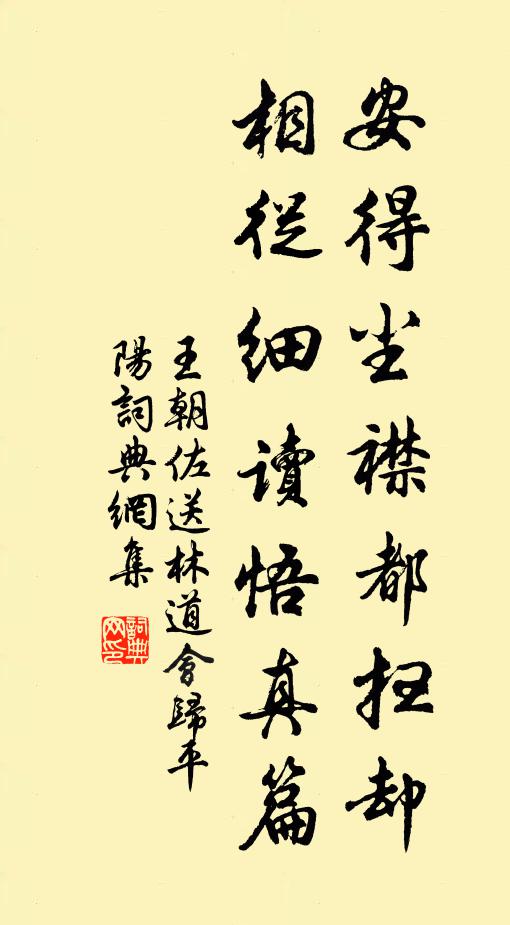 安得尘襟都扫却
相從细读悟真篇
王朝佐送林道會歸平
陽詞典網集
詞典网印